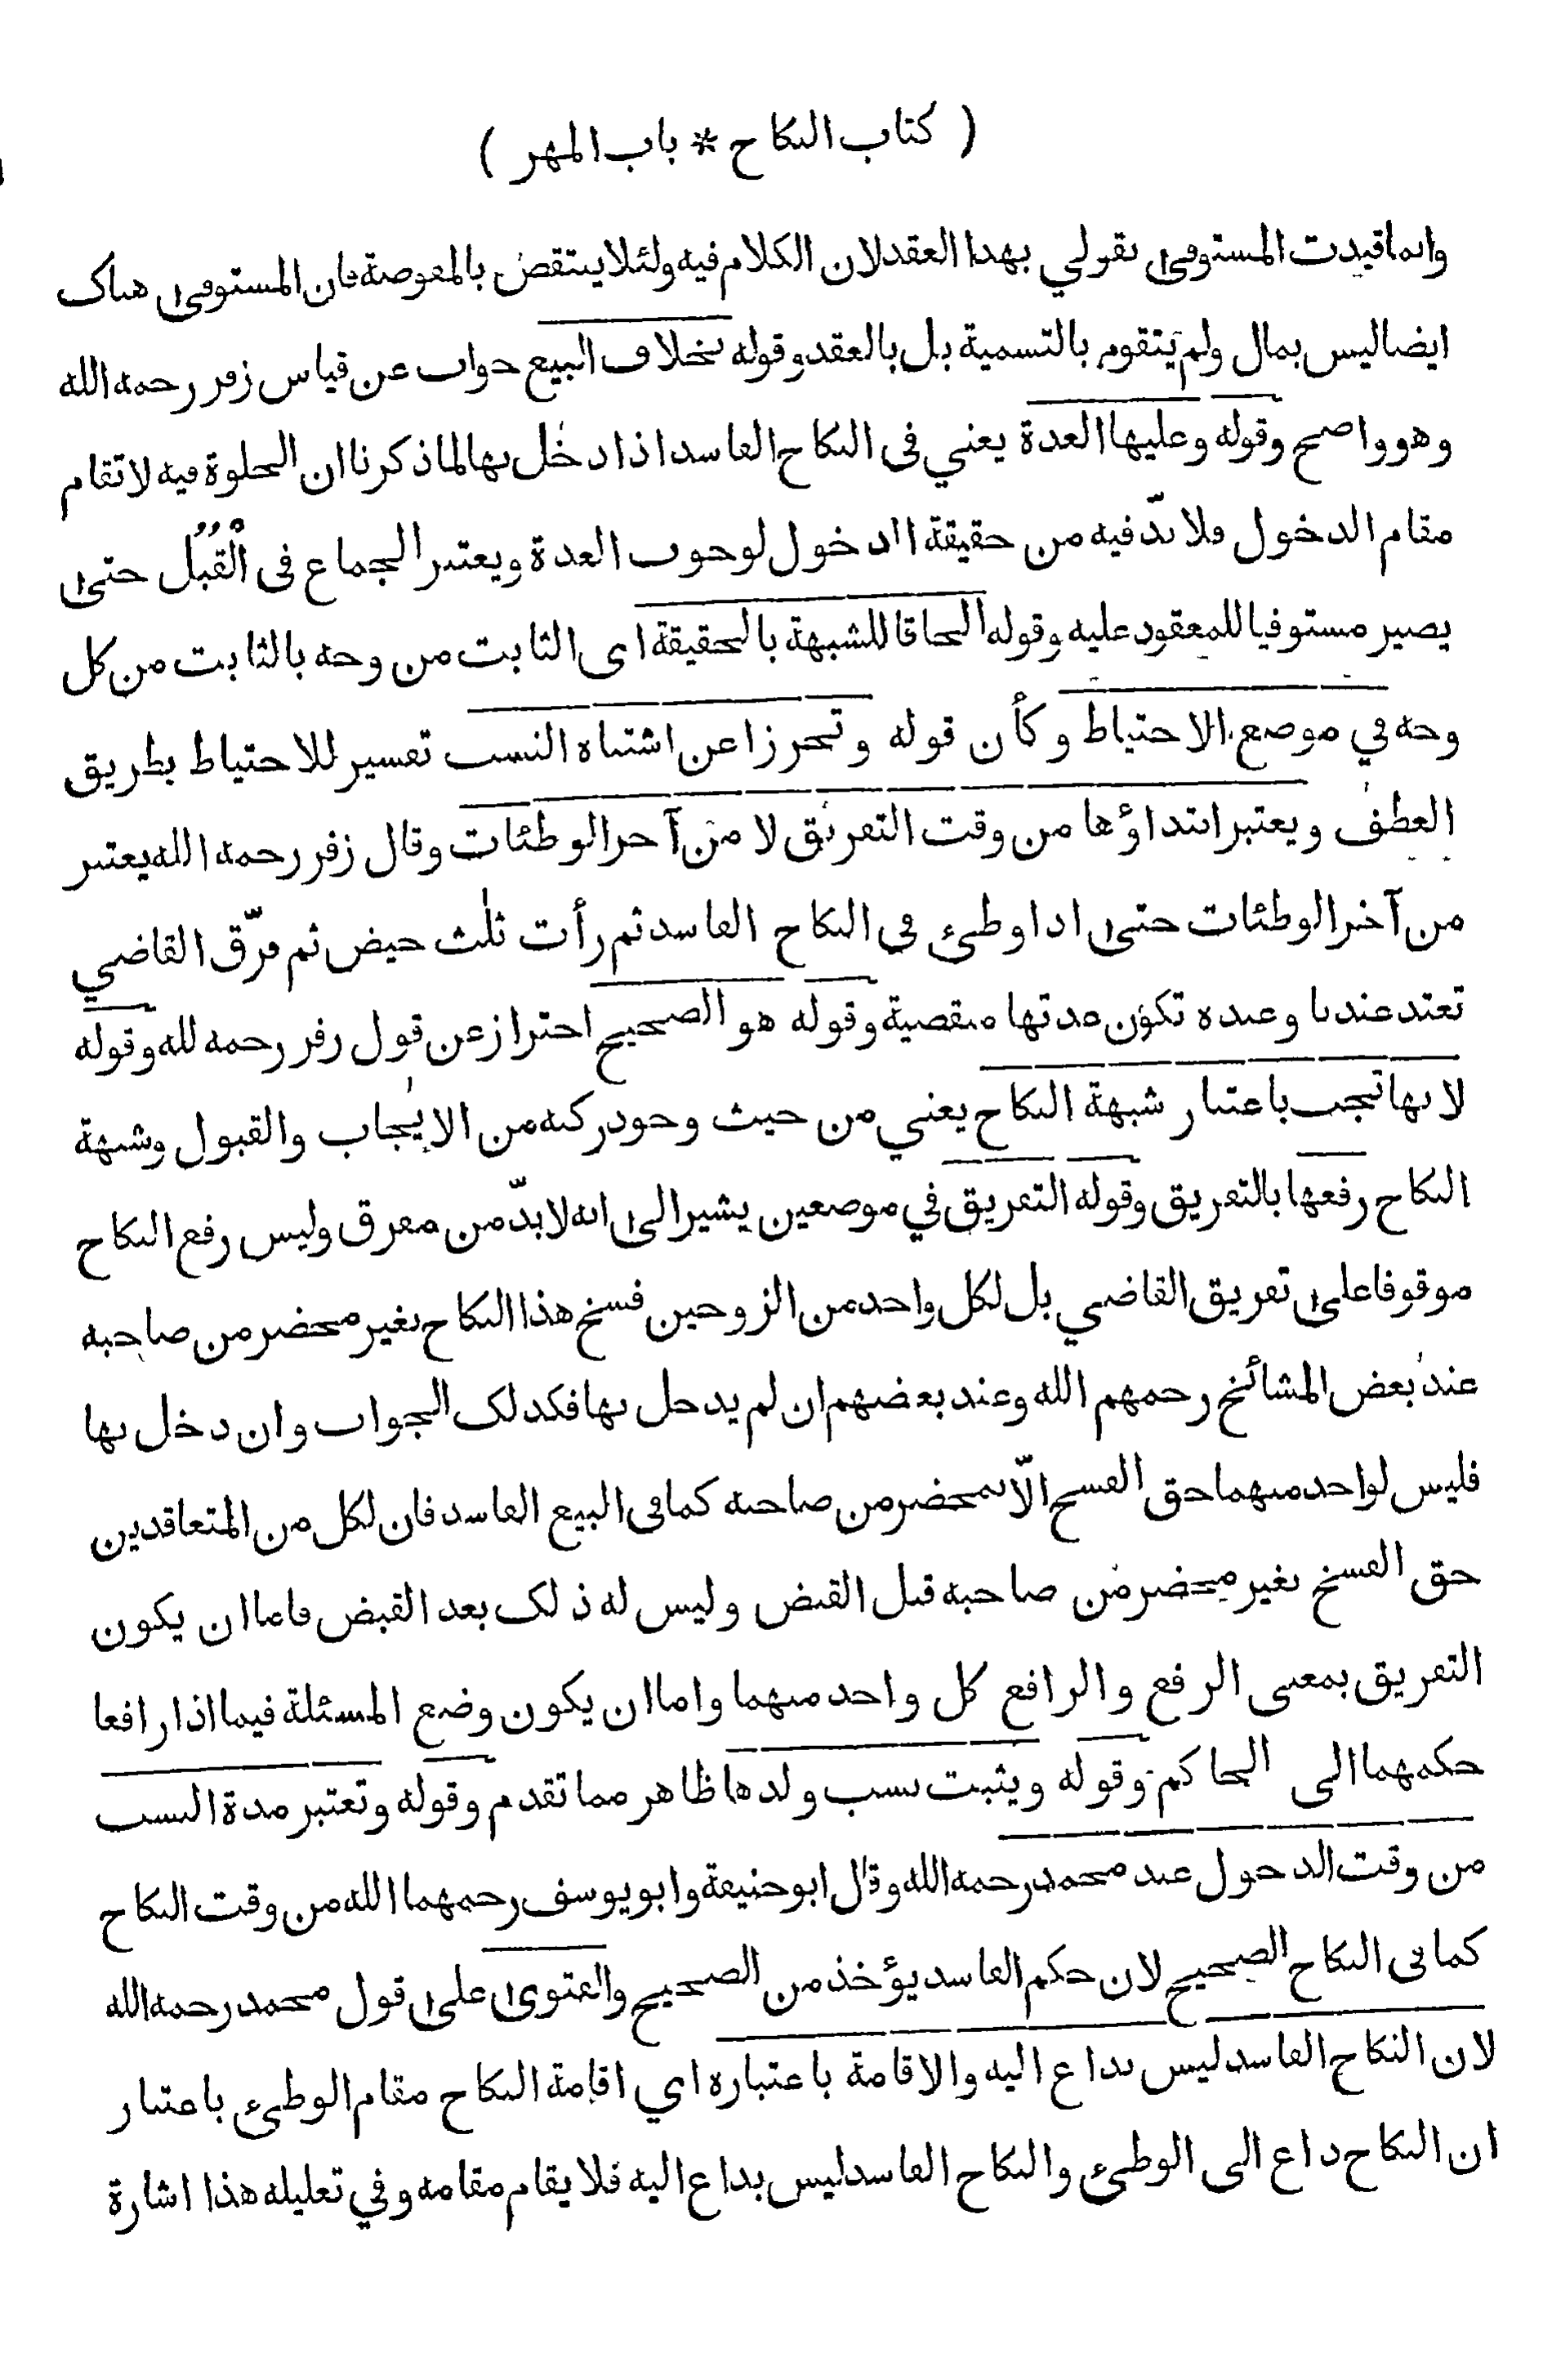 ( كتاب النكاح * باب المهر )
وانما قيدت المستوفى بقولي بهذا العقد لان الكلام فيه ولئلا ينتقض بالمفوضة فان المستوفى هناك
ايضا ليس بمال ولم يتقوم بالتسمية بل بالعقد وقوله بخلاف البيع جواب عن قياس زفر رحمه الله
وهو واضح وقوله وعليها العدة يعني فى النكاح الفاسد اذا دخل بها لما ذكرنا ان الخلوة فيه لا تقام
مقام الدخول فلا بدّ فيه من حقيقة الدخول لوجوب العدة ويعتبر الجماع فى الْقُبُل حتى
يصير مستوفيا للمعقود عليه وقوله الحاقا للشبهة بالحقيقة اى الثابت من وجه بالثابت من كل
وجه في موضع الاحتياط وكأن قوله وتحرزا عن اشتباه النسب تفسير للاحتياط بطريق
العطف ويعتبر ابتداؤها من وقت التفريق لا من آخر الوطئات وقال زفر رحمه الله يعتبر
من آخر الوطئات حتى اذا وطئ فى النكاح الفاسد ثم رأت ثلٰث حيض ثم فرّق القاضي
تعتد عندنا وعنده تكون عدتها منقضية وقوله هو الصحيح احتراز عن قول زفر رحمه لله وقوله
لانها تجب باعتبار شبهة النكاح يعني من حيث وجود ركنه من الايجاب والقبول وشبهة
النكاح رفعها بالتفريق وقوله التفريق في موضعين يشير الى انه لا بدّ من مفرق وليس رفع النكاح
موقوفا على تفريق القاضي بل لكل واحد من الزوجين فسخ هذا النكاح بغير محضر من صاحبه
عند بعض المشائخ رحمهم الله وعند بعضهم ان لم يدخل بها فكذلك الجواب وان دخل بها
فليس لواحد منهما حق الفسخ الّا بمحضر من صاحبه كما فى البيع الفاسد فان لكل من المتعاقدين
حق الفسخ بغير محضر من صاحبه قبل القبض وليس له ذلك بعد القبض فاما ان يكون
التفريق بمعنى الرفع والرافع كل واحد منهما واما ان يكون وضع المسئلة فيما اذا رافعا
حكمهما الى الحاكم وقوله ويثبت نسب ولدها ظاهر مما تقدم وقوله وتعتبر مدة النسب
من وقت الدخول عند محمد رحمه الله وقال ابو حنيفة وابو يوسف رحمهما الله من وقت النكاح
كما فى النكاح الصحيح لان حكم الفاسد يؤخذ من الصحيح والفتوى على قول محمد رحمه الله
لان النكاح الفاسد ليس بداع اليه والاقامة باعتباره اي اقامة النكاح مقام الوطئ باعتبار
ان النكاح داع الى الوطئ والنكاح الفاسد ليس بداع اليه فلا يقام مقامه وفي تعليله هذا اشارة